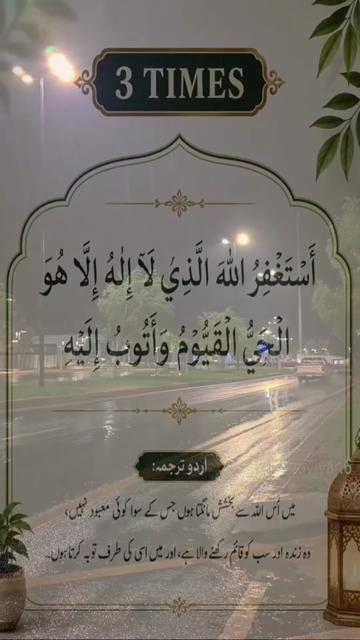 3 TIMES
أَسْتَغْفِرُ اللهَ الَّذِيْ لَآ إِلٰهُ إِلَّا هُوَ
الْحَيُّ الْقَيُّوْمُ وَأَتُوبُ إِلَيْهِ
اردو ترجمہ:
میں اُس اللہ سے بخشش مانگتا ہوں جس کے سوا کوئی معبود نہیں،
وہ زندہ اور سب کو قائم رکھنے والا ہے، اور میں اسی کی طرف توبہ کرتا ہوں۔